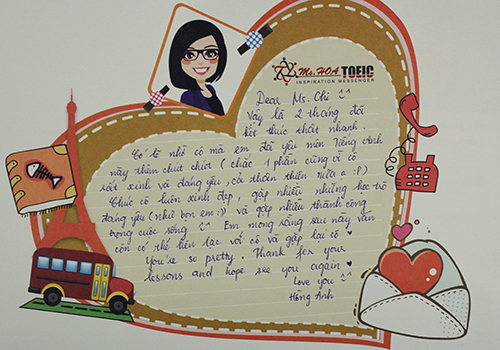 Ms. HOA TOEIC
INSPIRATION MESSENGER
Dear Ms. Chi ^^
Vậy là 2 tháng đã
kết thúc thật nhanh.
Có lẽ nhờ cô mà em đã yêu môn Tiếng anh
này thêm chút chút (chắc 1 phần cũng vì cô
rất xinh và đáng yêu, cả thân thiện nữa ạ :P)
Chúc cô luôn xinh đẹp, gặp nhiều những học trò
đáng yêu (như bọn em :)) và gặp nhiều thành công
trong cuộc sống ^^ Em mong rằng sau này vẫn
còn có thể liên lạc với cô và gặp lại cô ♥
You're so pretty. Thank for your
lessons and hope see you again ♥
Love you ^^
Hồng Anh